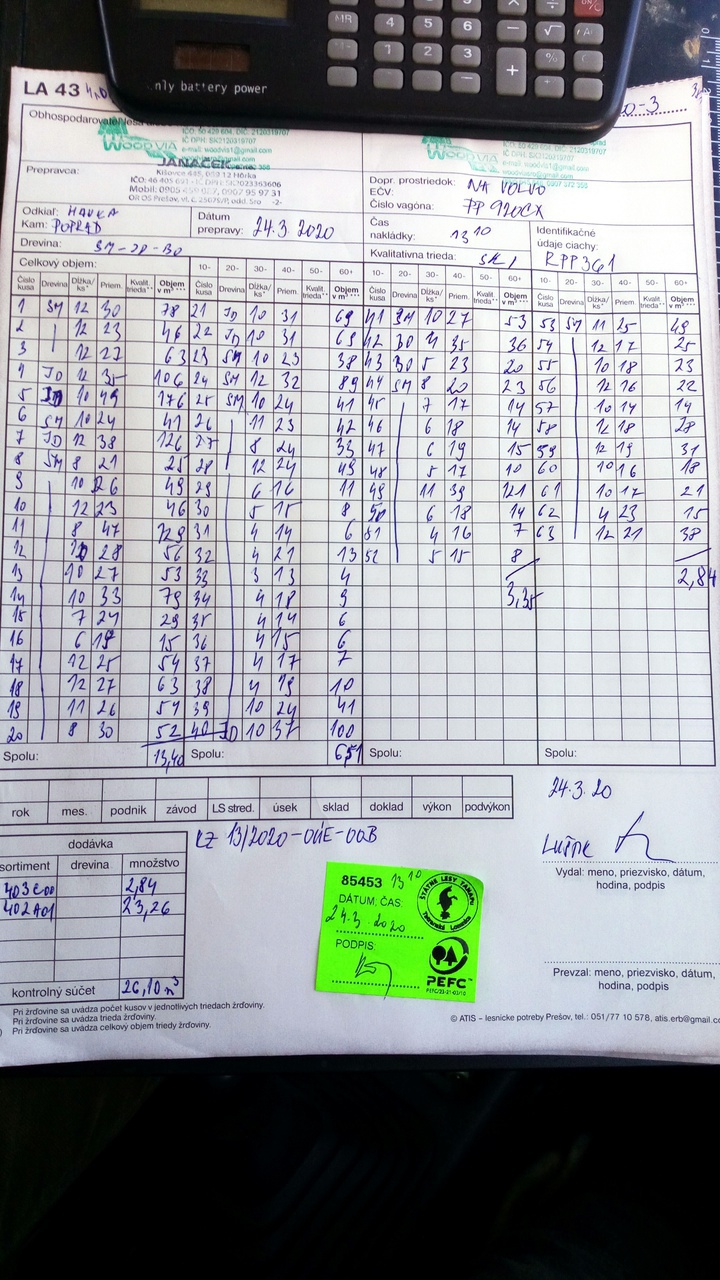 nly battery power
MR
4 5 6 - √
1 2 3 %
+ =
LA 43
Obhospodarovateľ
WOODVIA
IČO: 50 429 604, DIČ: 2120319707
IČ DPH: SK2120319707
e-mail: woodvia1@gmail.com
Prepravca:
JANÁČEK
Kišovce 445, 059 12 Hôrka
IČO: 46 405
Mobil: 0905 0907 95 97 31
Dopr. prostriedok: NA VOLVO
EČV:
Číslo vagóna: PP920CX
Odkiaľ: HAVKA
Kam: POPRAD
Dátum prepravy: 24.3.2020
Čas nakládky: 13 10
Identifikačné údaje ciachy: RPP361
Drevina: SM-JD-BO
Kvalitatívna trieda:
Celkový objem: 10- 20- 30- 40- 50- 60+ 10- 20- 30- 40- 50- 60+
Číslo kusa Drevina Dĺžka/ks* Priem. Kvalit. trieda** Objem v m³
1 SM 12 30 78 21 JD 10 31 69 41 SM 10 27 53 53 SM 11 25 49
2 12 23 46 22 JD 10 31 69 42 BO 4 35 36 54 12 17 25
3 12 27 63 23 SM 10 23 38 43 BO 5 23 20 55 10 18 23
4 JD 12 35 106 24 SM 12 32 89 44 SM 8 20 23 56 12 16 22
5 JD 10 49 176 25 SM 10 24 41 45 7 17 14 57 10 14 14
6 SM 10 24 41 26 11 23 42 46 6 18 14 58 12 18 28
7 JD 12 38 126 27 8 24 33 47 6 19 15 59 12 19 31
8 SM 8 21 25 28 12 24 49 48 5 17 10 60 10 16 18
9 10 26 49 29 6 16 11 49 11 39 121 61 10 17 21
10 12 23 46 30 5 15 8 50 6 18 14 62 4 23 15
11 8 47 129 31 4 14 6 51 4 16 7 63 12 21 38
12 10 28 56 32 4 21 13 52 5 15 8
13 10 27 53 33 3 13 4 2,84
14 10 33 79 34 4 18 9 3,35
15 7 24 29 35 4 14 6
16 6 19 15 36 4 15 6
17 12 25 54 37 4 17 7
18 12 27 63 38 4 19 10
19 11 26 54 39 10 24 41
20 8 30 52 40 JD 10 37 100
Spolu: 13,40 Spolu: 651 Spolu: Spolu:
rok mes. podnik závod LS stred. úsek sklad doklad výkon podvýkon
24.3.20
dodávka
sortiment drevina množstvo
403C00 2,84
402A01 23,26
kontrolný súčet 26,10 m³
Vydal: meno, priezvisko, dátum,
hodina, podpis
Prevzal: meno, priezvisko, dátum,
hodina, podpis
85453 13 10
DÁTUM, ČAS:
24.3.2020
PODPIS:
ŠTÁTNE LESY TANAPU
Tatranská Lomnica
PEFC™
Pri žrďovine sa uvádza počet kusov v jednotlivých triedach žrďoviny.
Pri žrďovine sa uvádza trieda žrďoviny.
Pri žrďovine sa uvádza celkový objem triedy žrďoviny.
© ATIS – lesnícke potreby Prešov, tel.: 051/77 10 578, atis.erb@gmail.co